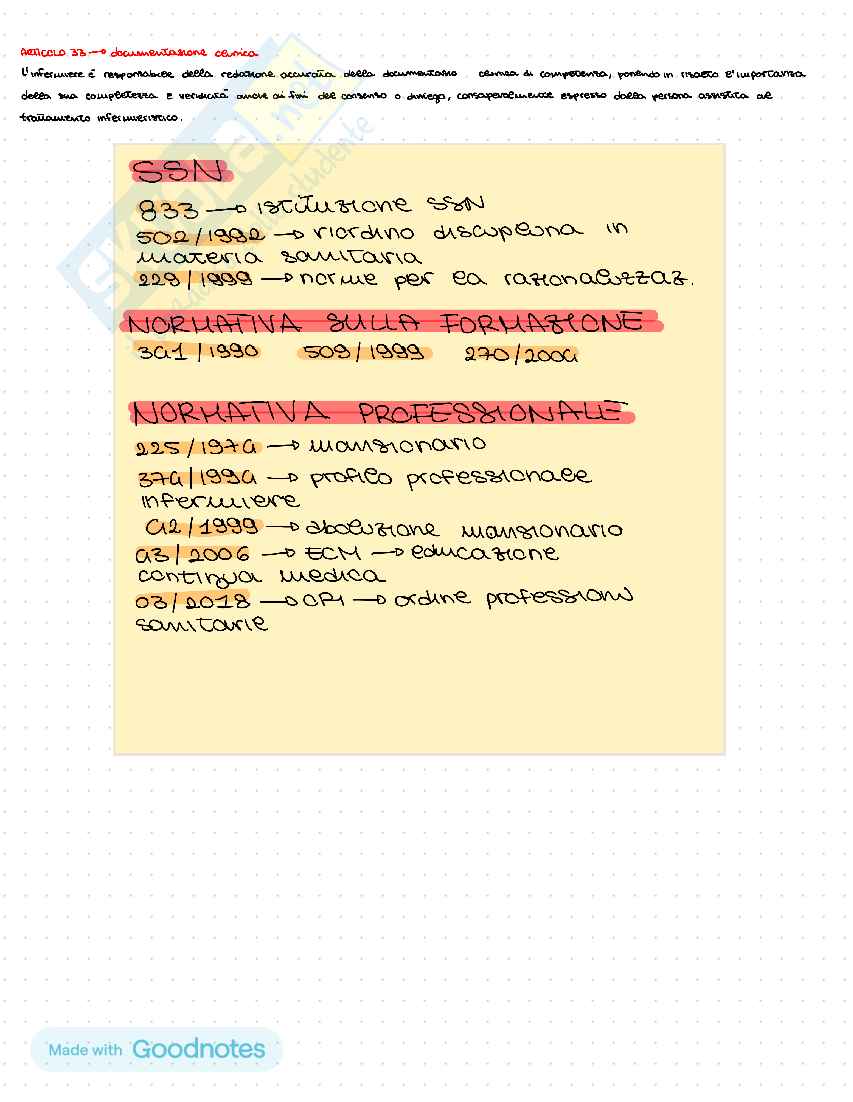 ARTICOLO 33 → documentazione clinica
L'infermiere è responsabile della redazione accurata della documentazio clinica di competenza, ponendo in risalto l'importanza
della sua completezza e veridicità anche ai fini del consenso o diniego, consapevolmente espresso dalla persona assistita al
trattamento infermieristico.
SSN
833 → istituzione SSN
502/1992 → riordino disciplina in
materia sanitaria
229/1999 → norme per la razionalizzaz.
NORMATIVA SULLA FORMAZIONE
341/1990 509/1999 270/2004
NORMATIVA PROFESSIONALE
225/1974 → mansionario
374/1994 → profilo professionale
infermiere
42/1999 → abolizione mansionario
43/2006 → ECM → educazione
continua medica
03/2018 → OPI → ordine professioni
sanitarie
Made with Goodnotes